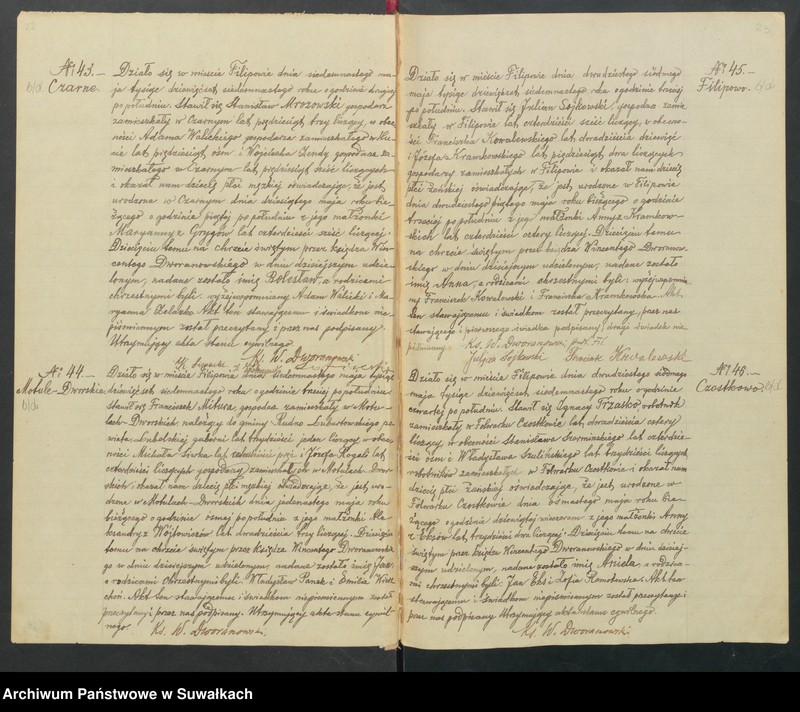 № 43.
Czarne.
Działo się w mieście Filipowie dnia siedemnastego ma-
ja tysiąc dziewięćset siedemnastego roku o godzinie drugiej
po południu. Stawił się Stanisław Mrozowski gospodarz
zamieszkały w Czarnem lat pięćdziesiąt trzy liczący, w obec-
ności Adama Walickiego gospodarza zamieszkałego w
lat pięćdziesiąt ośm i Wojciecha Zendy gospodarza za-
mieszkałego w Czarnem lat pięćdziesiąt sześć liczących
i okazał nam dziecię płci męskiej oświadczając, że jest
urodzone w Czarnem dnia dziesiątego maja roku bie-
żącego o godzinie piątej po południu z jego małżonki
Maryanny z Grygów lat czterdzieści sześć liczącej.
Dziecięciu temu na chrzcie świętym przez księdza Win-
centego Dworanowskiego w dniu dzisiejszym udzie-
lonym, nadane zostało imię Bolesław, a rodzicami
chrzestnymi byli: wyżejwspomniany Adam Walicki i Ma-
ryanna Akt ten stawającemu i świadkom nie-
piśmiennym został przeczytany i przez nas podpisany.
Utrzymujący akta stanu cywilnego.
Ks. W. Dworanowski
№ 44.
Motule-Dworskie
Działo się w mieście Filipowie dnia siedemnastego maja tysiąc
dziewięćset siedemnastego roku o godzinie trzeciej po południu
stawił się Franciszek Mitura gospodarz zamieszkały w Motu-
lach-Dworskich należący do gminy Rudno Lubartowskiego po-
wiatu Lubelskiej guberni lat trzydzieści jeden liczący, w obec-
ności Michała Sówka lat i Józefa Rogali lat
czterdzieści liczących gospodarzy zamieszkałych w Motulach-Dwor-
skich i okazał nam dziecię płci męskiej oświadczając, że jest uro-
dzone w Motulach-Dworskich dnia jedenastego maja roku
bieżącego o godzinie ósmej po południu z jego małżonki Ale-
ksandry z Wójtowiczów lat dwadzieścia trzy liczącej. Dziecięciu
temu na chrzcie świętym przez Księdza Wincentego Dworanowskie-
go w dniu dzisiejszym udzielonym, nadane zostało imię Jan
a rodzicami Chrzestnymi byli: Władysław Panek i Emilia
Akt ten stawającemu i świadkom niepiśmiennym został
przeczytany i przez nas podpisany. Utrzymujący akta stanu cywil-
nego. Ks. W. Dworanowski.
№ 45.
Filipowo.
Działo się w mieście Filipowie dnia dwudziestego siódmego
maja tysiąc dziewięćset siedemnastego roku o godzinie trzeciej
po południu. Stawił się Julian Sojkowski, gospodarz zamie-
szkały w Filipowie lat czterdzieści sześć liczący, w obecno-
ści Franciszka Kowalewskiego lat dwadzieścia dziewięć
i Józefa Kramkowskiego lat pięćdziesiąt dwa liczących
gospodarzy zamieszkałych w Filipowie i okazał nam dziecię
płci żeńskiej oświadczając, że jest urodzone w Filipowie
dnia dwudziestego piątego maja roku bieżącego o godzinie
trzeciej po południu z jego małżonki Anny z Kramkow-
skich lat czterdzieści cztery liczącej. Dziecięciu temu
na chrzcie świętym przez księdza Wincentego Dworanow-
skiego w dniu dzisiejszym udzielonym, nadane zostało
imię Anna, a rodzicami chrzestnymi byli: wyżejwspomnia-
ny Franciszek Kowalewski i Franciszka Kramkowska. Akt
ten stawającemu i świadkom został przeczytany, przez nas
stawającego i pierwszego świadka podpisany, drugi świadek nie-
piśmienny. Ks. W. Dworanowski
Juljan Sojkowski Kowalewski
№ 46.
Czostkowo.
Działo się w mieście Filipowie dnia dwudziestego siódmego
maja tysiąc dziewięćset siedemnastego roku o godzinie
czwartej po południu. Stawił się Ignacy Trzasko robotnik
zamieszkały w Folwarku Czostkowie lat dwadzieścia cztery
liczący w obecności Stanisława lat czterdzie-
ści ośm i Władysława Szulińskiego lat trzydzieści liczących
robotników zamieszkałych w Folwarku Czostkowie i okazał nam
dziecię płci żeńskiej oświadczając, że jest urodzone w
Folwarku Czostkowie dnia ósmastego maja roku bie-
żącego o godzinie dziewiątej wieczorem z jego małżonki Anny
z lat trzydzieści dwa liczącej. Dziecięciu temu na chrzcie
świętym przez księdza Wincentego Dworanowskiego w dniu dzisiej-
szym udzielonym, nadane zostało imię Aniela, a rodzica-
mi chrzestnymi byli: Jan i Zofia Akt ten
stawającemu i świadkom niepiśmiennym został przeczytany i
przez nas podpisany Utrzymujący akta stanu cywilnego.
Ks. W. Dworanowski.
Archiwum Państwowe w Suwałkach